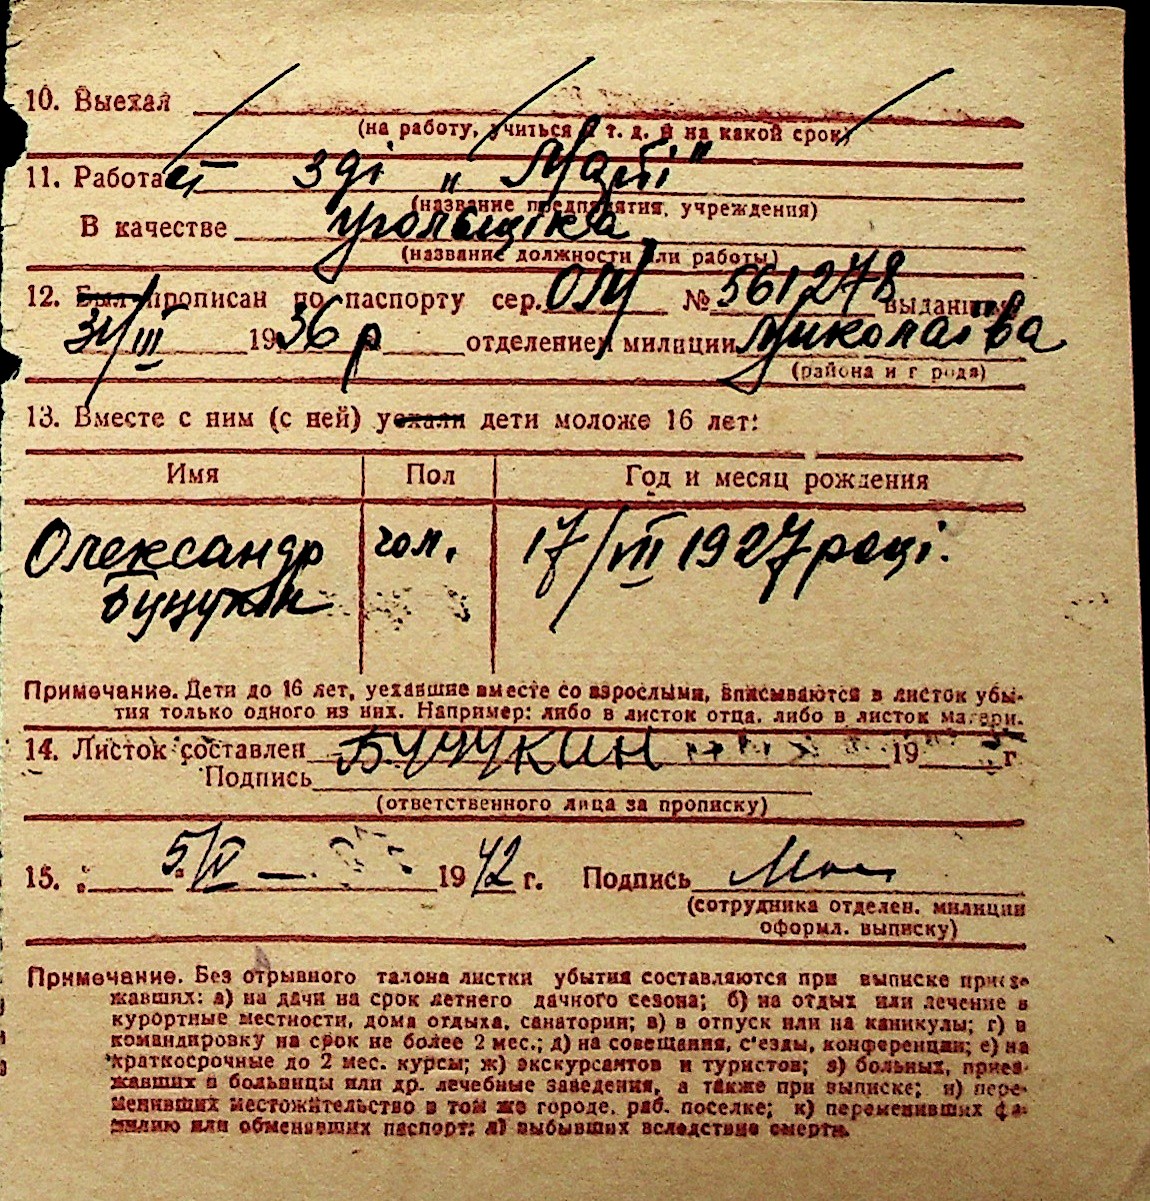 10. Выехал
(на работу, учиться и т. д. и на какой срок)
11. Работает з-ді „Марті"
(название предприятия, учреждения)
В качестве угольщіка
(название должности или работы)
12. Был прописан по паспорту сер. ОМ № 561278 выдан
31/III 1936 р отделением милиции Миколаїва
(района и города)
13. Вместе с ним (с ней) уехали дети моложе 16 лет:
Имя Пол Год и месяц рождения
Олександр чол. 17/VIII 1927 році.
Буцукин
Примечание. Дети до 16 лет, уехавшие вместе со взрослыми, вписываются в листок убы-
тия только одного из них. Например: либо в листок отца, либо в листок матери.
14. Листок составлен Буцукин 19 г
Подпись
(ответственного лица за прописку)
15. 5/IV 1942 г. Подпись
(сотрудника отделен. милиции
оформл. выписку)
Примечание. Без отрывного талона листки убытия составляются при выписке приез-
жавших: а) на дачи на срок летнего дачного сезона; б) на отдых или лечение в
курортные местности, дома отдыха, санатории; в) в отпуск или на каникулы; г) в
командировку на срок не более 2 мес.; д) на совещания, с'езды, конференции; е) на
краткосрочные до 2 мес. курсы; ж) экскурсантов и туристов; з) больных, приез-
жавших в больницы или др. лечебные заведения, а также при выписке; и) пере-
менивших местожительство в том же городе, раб. поселке; к) переменивших фа-
милию или обменивших паспорт; л) выбывших вследствие смерти.